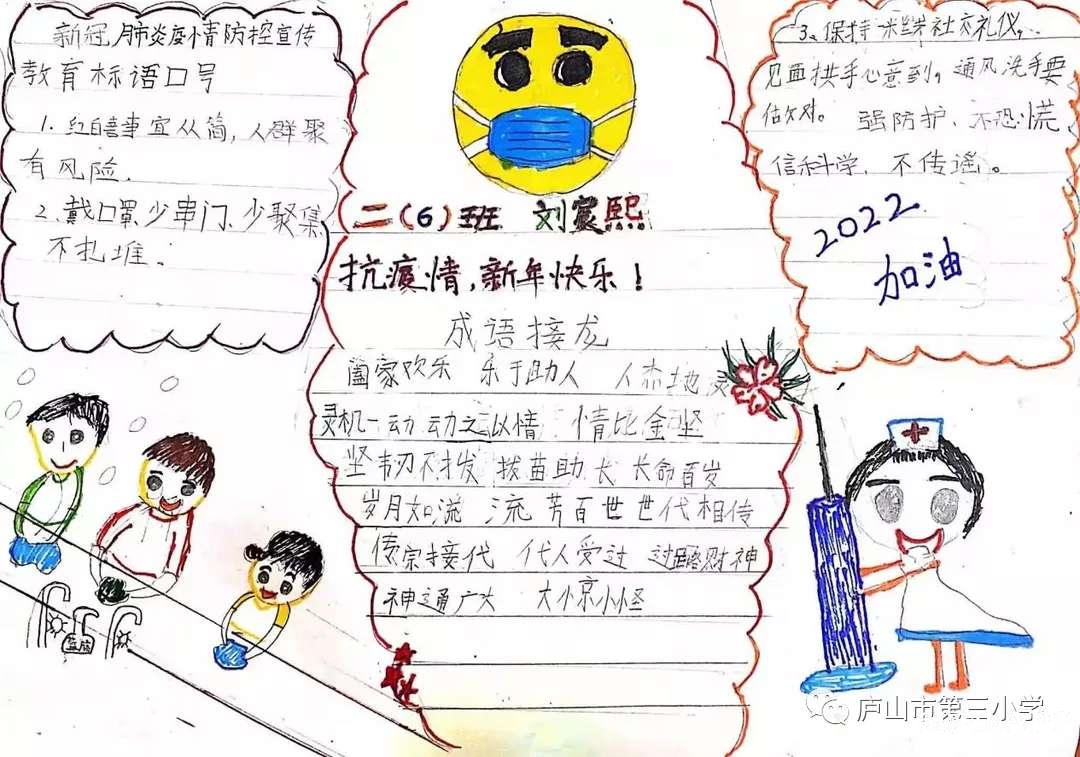 新冠肺炎疫情防控宣传
教育标语口号
1. 红白喜事宜从简,人群聚
有风险.
2. 戴口罩,少串门、少聚集
不扎堆.
二(6)班 刘宸熙
抗疫情,新年快乐!
成语接龙
阖家欢乐 乐于助人 人杰地灵
灵机一动 动之以情 情比金坚
坚韧不拔 拔苗助长 长命百岁
岁月如 流芳百世 世代相传
传宗接代 代人受过 过路财神
神通广大 大惊小怪
3、保持 社交礼仪,
见面拱手心意到。通风洗手要
强防护、不恐慌,
信科学、不传谣。
2022
加油
庐山市第三小学